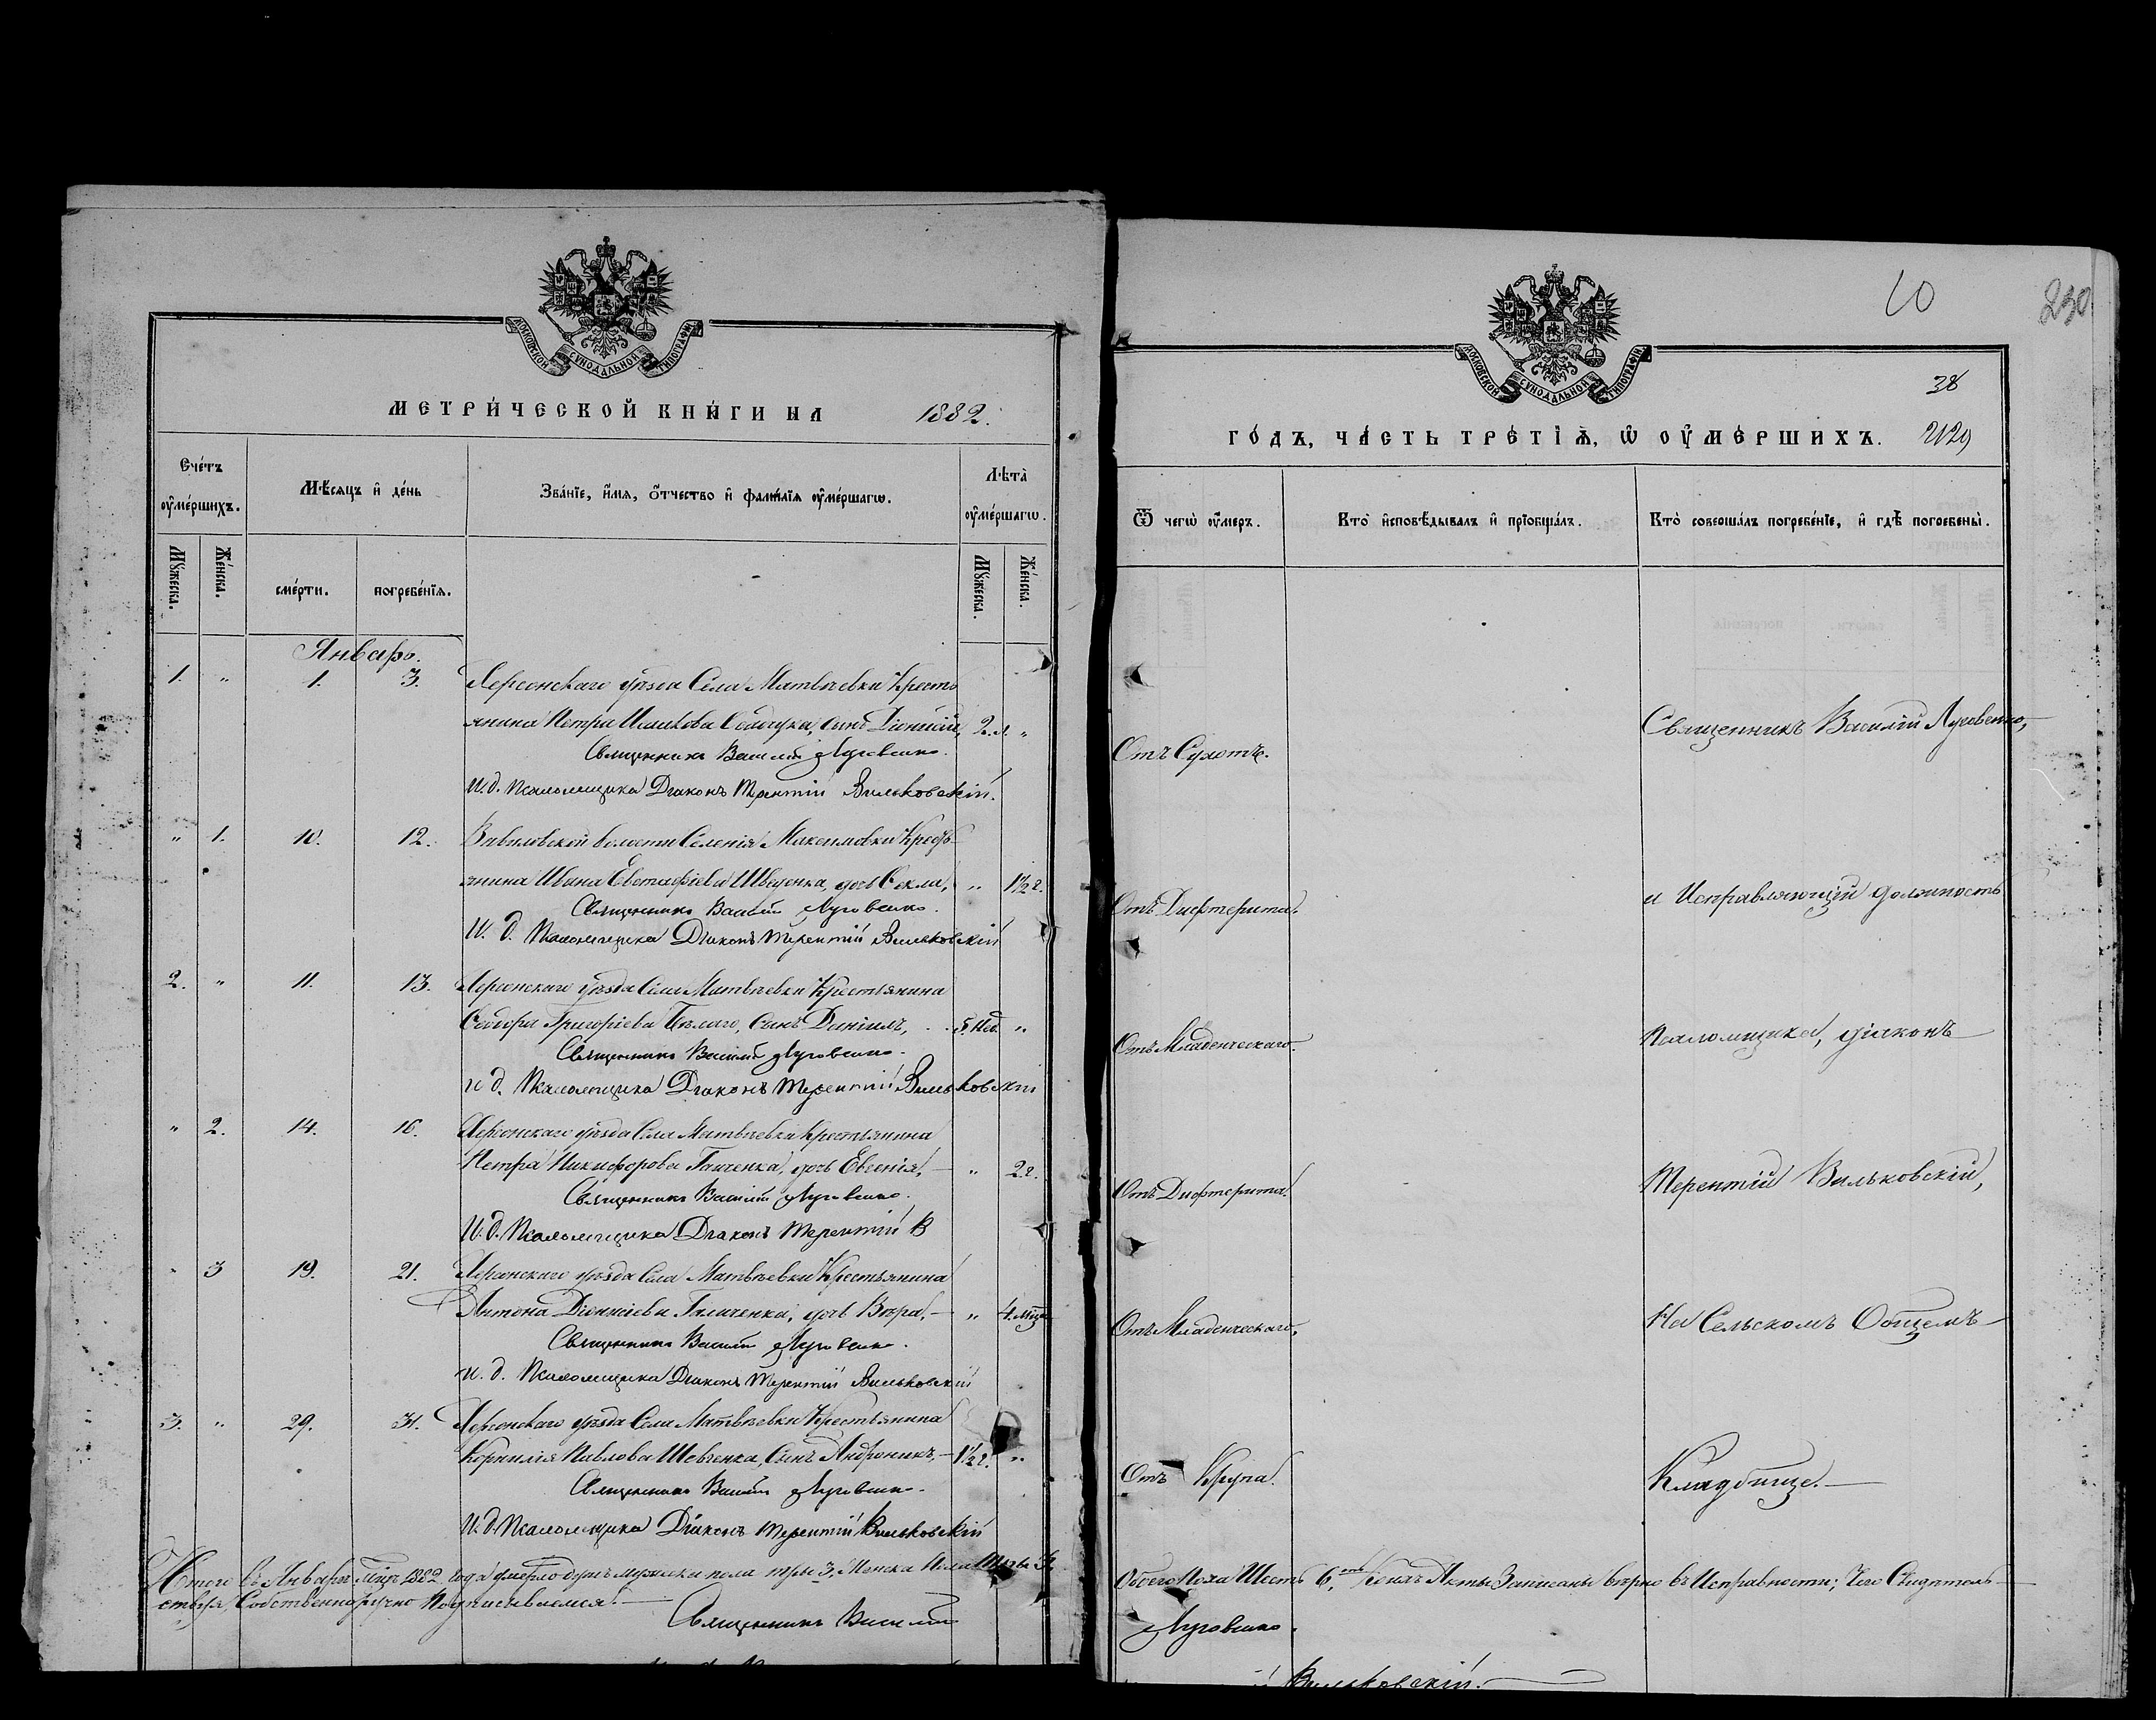 МОСКОВСКОЙ СУНОДАЛЬНОЙ ТИПОГРАФІИ
МЕТРИ́ЧЕСКОЙ КНИ́ГИ НА 1882.
Сче́тъ оу҆ме́ршихъ.
Мѣ́сяцъ и҆ де́нь
Зва́нїе, и҆́мя, ѻ҆́тчество и҆ фами́лїя оу҆ме́ршагѡ.
Лѣта̀ оу҆ме́ршагѡ.
Мꙋ́жеска.
Же́нска.
сме́рти.
погребе́нїя.
Мꙋ́жеска.
Же́нска.
Январь.
1. " 1. 3. Херсонскаго уѣзда Села Матвѣевки Кресть
янина Петра Исакова Собчука, сынъ Діонисій, 2. л. "
Священникъ Василій Луговенко.
И. д. Псаломщика Діаконъ Терентій Вильковскій.
" 1. 10. 12. Вавиловской волости Селенія Максимовки Кресть-
янина Ивана Евстафіева Швеценка, дочь Ѳекла, " 1½ г.
Священникъ Василій Луговенко.
И. д. Псаломщика Діаконъ Терентій Вильковскій
2. " 11. 13. Херсонскаго уѣзда Села Матвѣевки Крестьянина
Ѳеодора Григоріева Бѣлаго, Сынъ Даніилъ, 5 Нед. "
Священникъ Василій Луговенко.
и д. Псаломщика Діаконъ Терентій Вильковскій
" 2. 14. 16. Херсонскаго уѣзда Села Матвѣевки Крестьянина
Петра Никифорова Ганченка, дочь Евгенія, " 2 г.
Священникъ Василій Луговенко.
И. д. Псаломщика Діаконъ Терентій В
" 3 19. 21. Херсонскаго уѣзда Села Матвѣевки Крестьянина
Антона Діонисіева Галиченка, дочь Вѣра, " 4. мца
Священникъ Василій Луговенко.
и. д. Псаломщика Діаконъ Терентій Вильковскій
3. " 29. 31. Херсонскаго уѣзда Села Матвѣевки Крестьянина
Корнилія Павлова Шевченка, Сынъ Андроникъ, 1½ г. "
Священникъ Василій Луговенко.
И. д. Псаломщика Діаконъ Терентій Вильковскій
Итого въ Январѣ Мцѣ 1882 года умерло душъ мужеска пола три 3, Женска Пола Три 3
ствуя, Собственноручно Подписываемся.
Священникъ Василій
10
230
МОСКОВСКОЙ СУНОДАЛЬНОЙ ТИПОГРАФІИ
38
ГО́ДЪ, ЧА́СТЬ ТРЕ́ТІѦ, Ѡ҆ ОУ҆МЕ́РШИХЪ. 2129
Ѿ чегѡ̀ оу҆́меръ.
Кто̀ и҆сповѣ́дывалъ и҆ прїѡбща́лъ.
Кто̀ соверша́лъ погребе́нїе, и҆ гдѣ̀ погребены̀.
Священникъ Василій Луговенко,
Отъ Сухотъ.
и Исправляющій должность
Отъ Дифтерита.
Псаломщика, діаконъ
Отъ Младенческаго.
Терентій Вильковскій,
Отъ Дифтерита.
На Сельскомъ Общемъ
Отъ Младенческаго.
Отъ Крупа.
Кладбище.
Обоего Пола Шесть 6, Акты Записаны вѣрно въ Исправности; Чего Свидѣтель-
Луговенко.
Вильковскій.